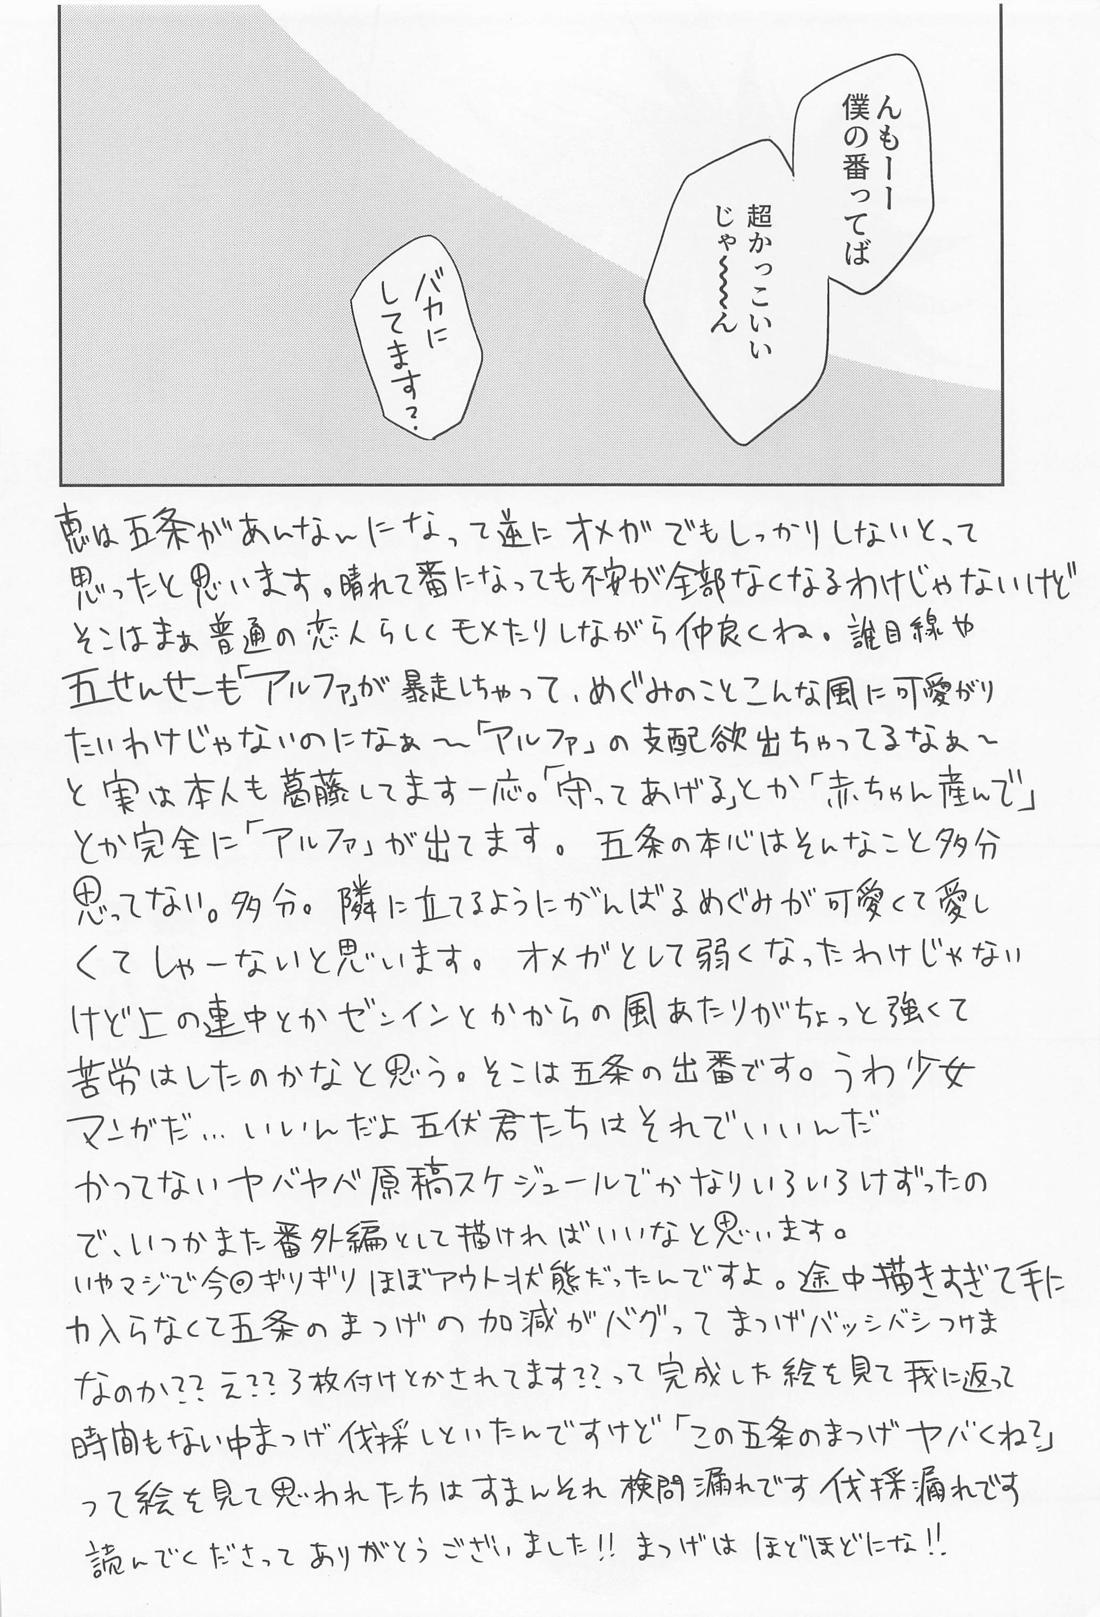 んもーー
僕の番ってば
超かっこいい
じゃ～～～ん
バカに
してます?
恵は五条があんなんになって逆にオメガでもしっかりしないとって
思ったと思います。晴れて番になっても不安が全部なくなるわけじゃないけど
そこはまぁ普通の恋人らしくモメたりしながら仲良くね。誰目線や
五せんせーも「アルファ」が暴走しちゃって、めぐみのことこんな風に可愛がり
たいわけじゃないのになぁ〜「アルファ」の支配欲出ちゃってるなぁ〜
と実は本人も葛藤してます一応。「守ってあげる」とか「赤ちゃん産んで」
とか完全に「アルファ」が出てます。五条の本心はそんなこと多分
思ってない。多分。隣に立てるようにがんばるめぐみが可愛くて愛し
くてしゃーないと思います。オメガとして弱くなったわけじゃない
けど上の連中とかゼンインとかからの風あたりがちょっと強くて
苦労はしたのかなと思う。そこは五条の出番です。うわ少女
マンガだ…いいんだよ五伏君たちはそれでいいんだ
かつてないヤバヤバ原稿スケジュールでかなりいろいろけずったの
で、いつかまた番外編として描ければいいなと思います。
いやマジで今回ギリギリほぼアウト状態だったんですよ。途中描きすぎて手に
力入らなくて五条のまつげの加減がバグってまつげバッシバシつけま
なのか??え??3枚付けとかされてます??って完成した絵を見て我に返って
時間もない中まつげ伐採しといたんですけど「この五条のまつげヤバくね?」
って絵を見て思われた方はすまんそれ検問漏れです伐採漏れです
読んでくださってありがとうございました!!まつげはほどほどにな!!